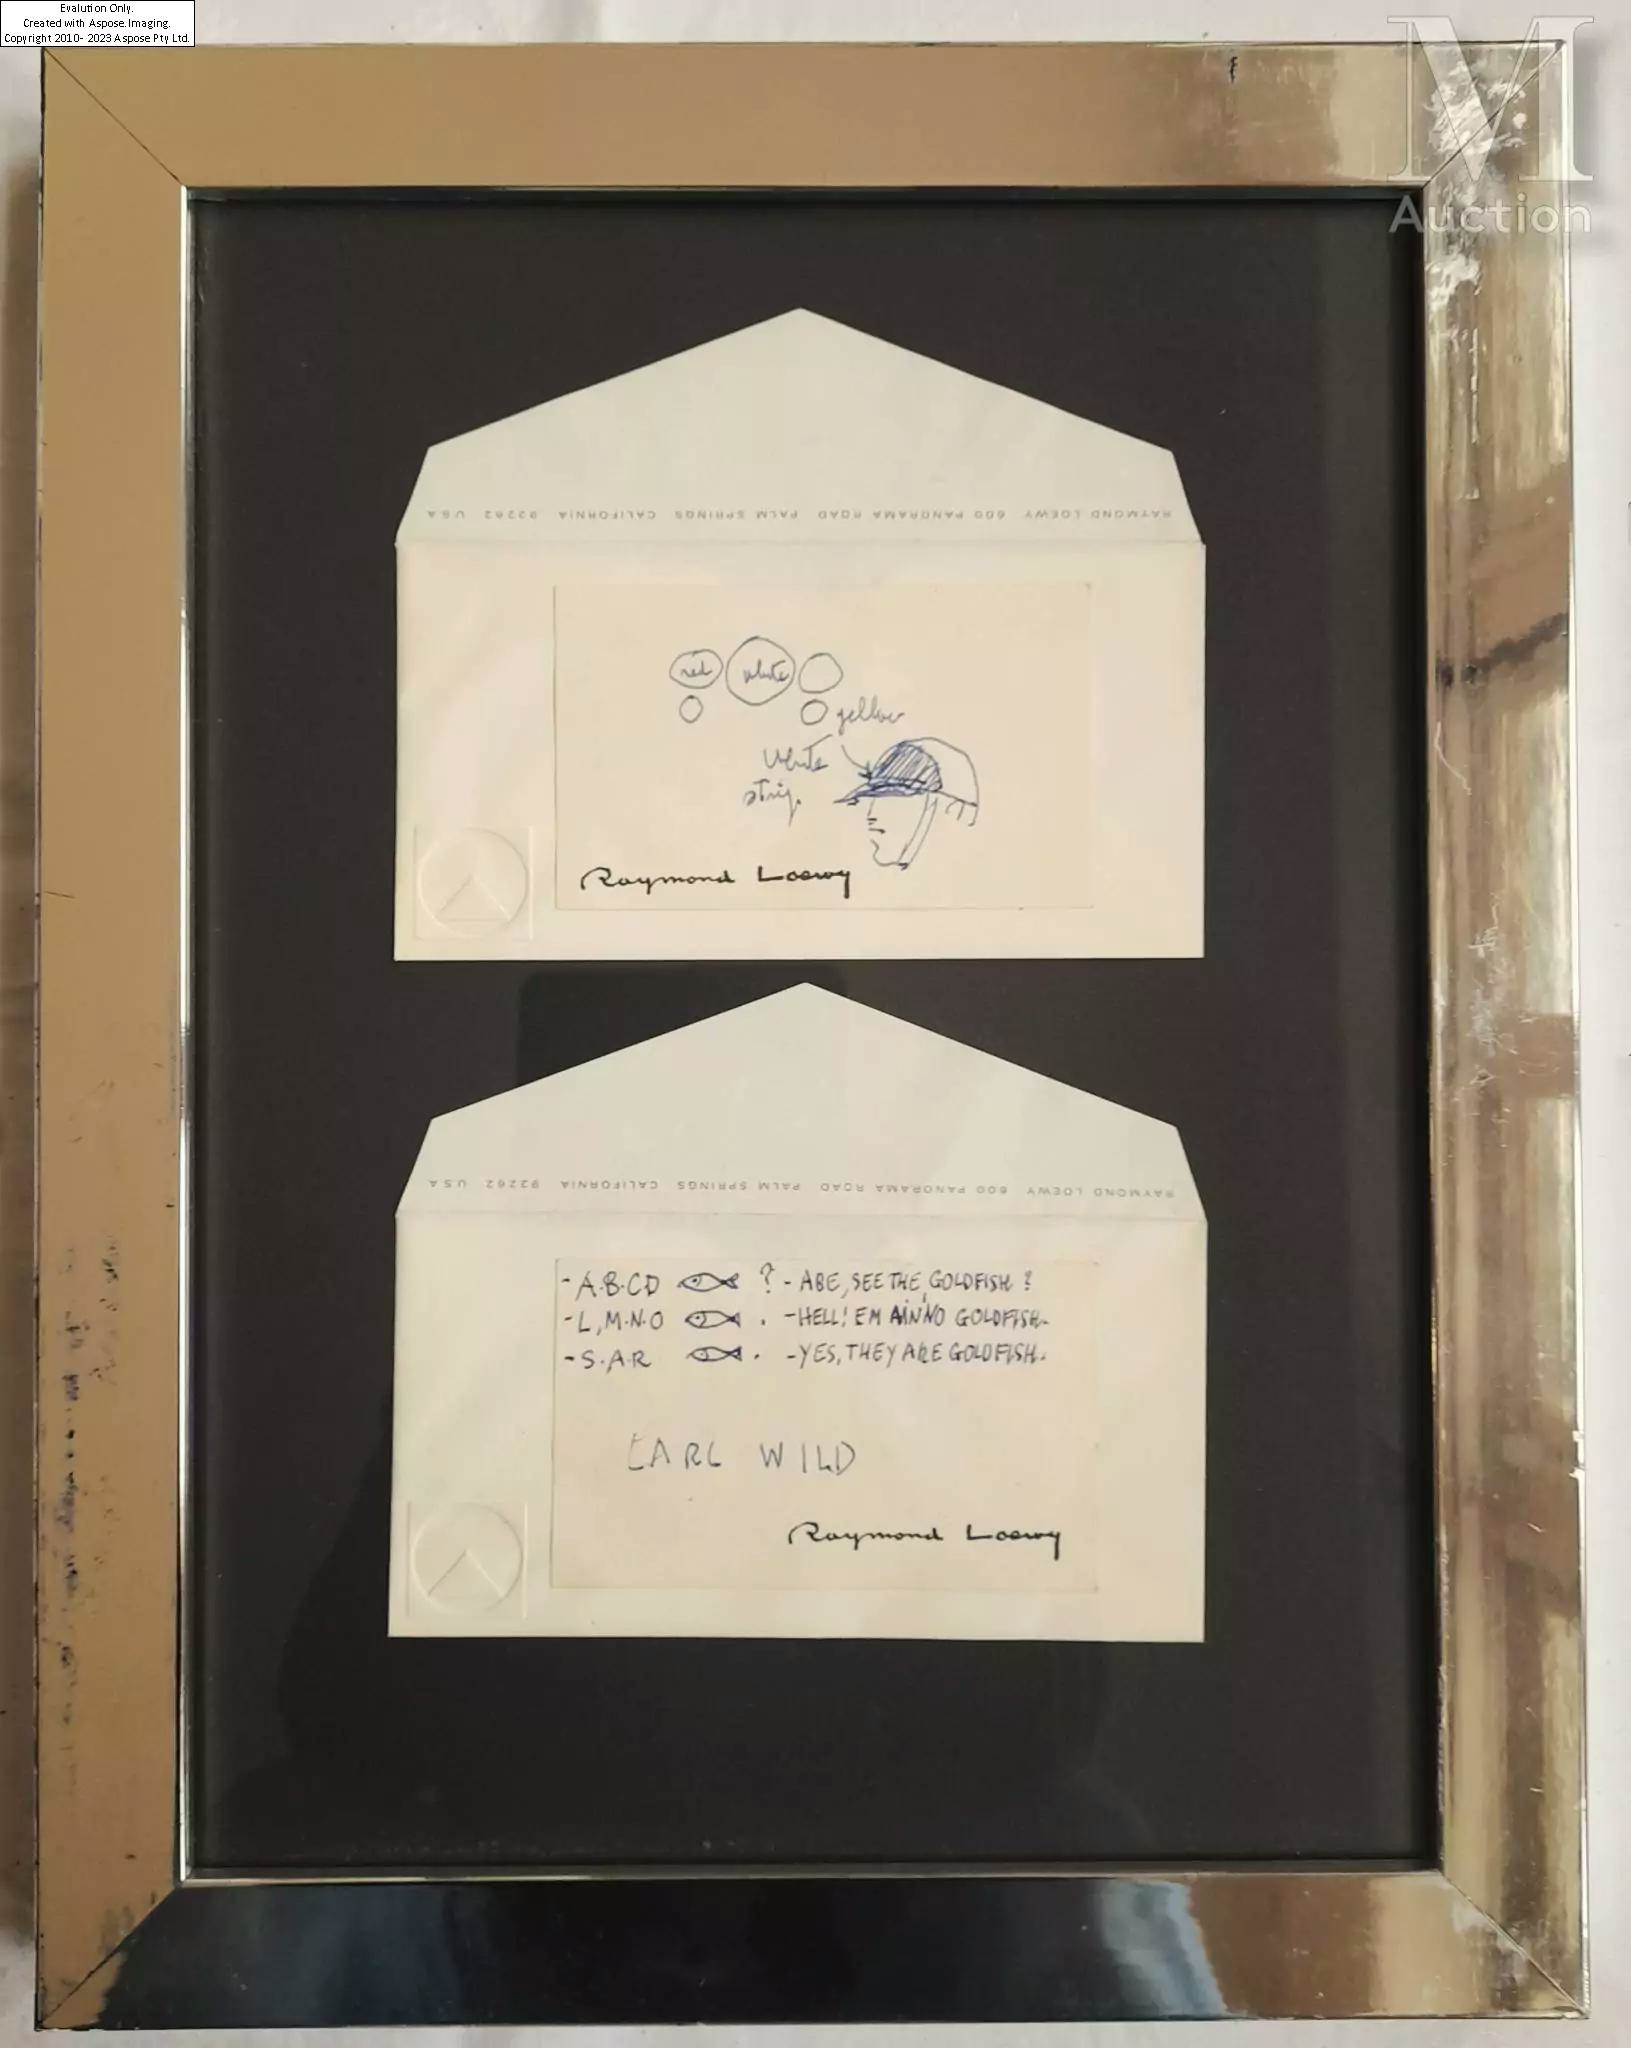 Evalution Only.
Created with Aspose.Imaging.
Copyright 2010- 2023 Aspose Pty Ltd.
M
Auction
RAYMOND LOEWY 600 PANORAMA ROAD PALM SPRINGS CALIFORNIA 92262 USA
red white
yellow
White
strip.
Raymond Loewy
RAYMOND LOEWY 600 PANORAMA ROAD PALM SPRINGS CALIFORNIA 92262 USA
-A.B.CD ? - ABE, SEE THE GOLDFISH ?
-L, M.N.O . -HELL! EM AIN'NO GOLDFISH.
-S.A.R . -YES, THEY ARE GOLDFISH.
EARL WILD
Raymond Loewy